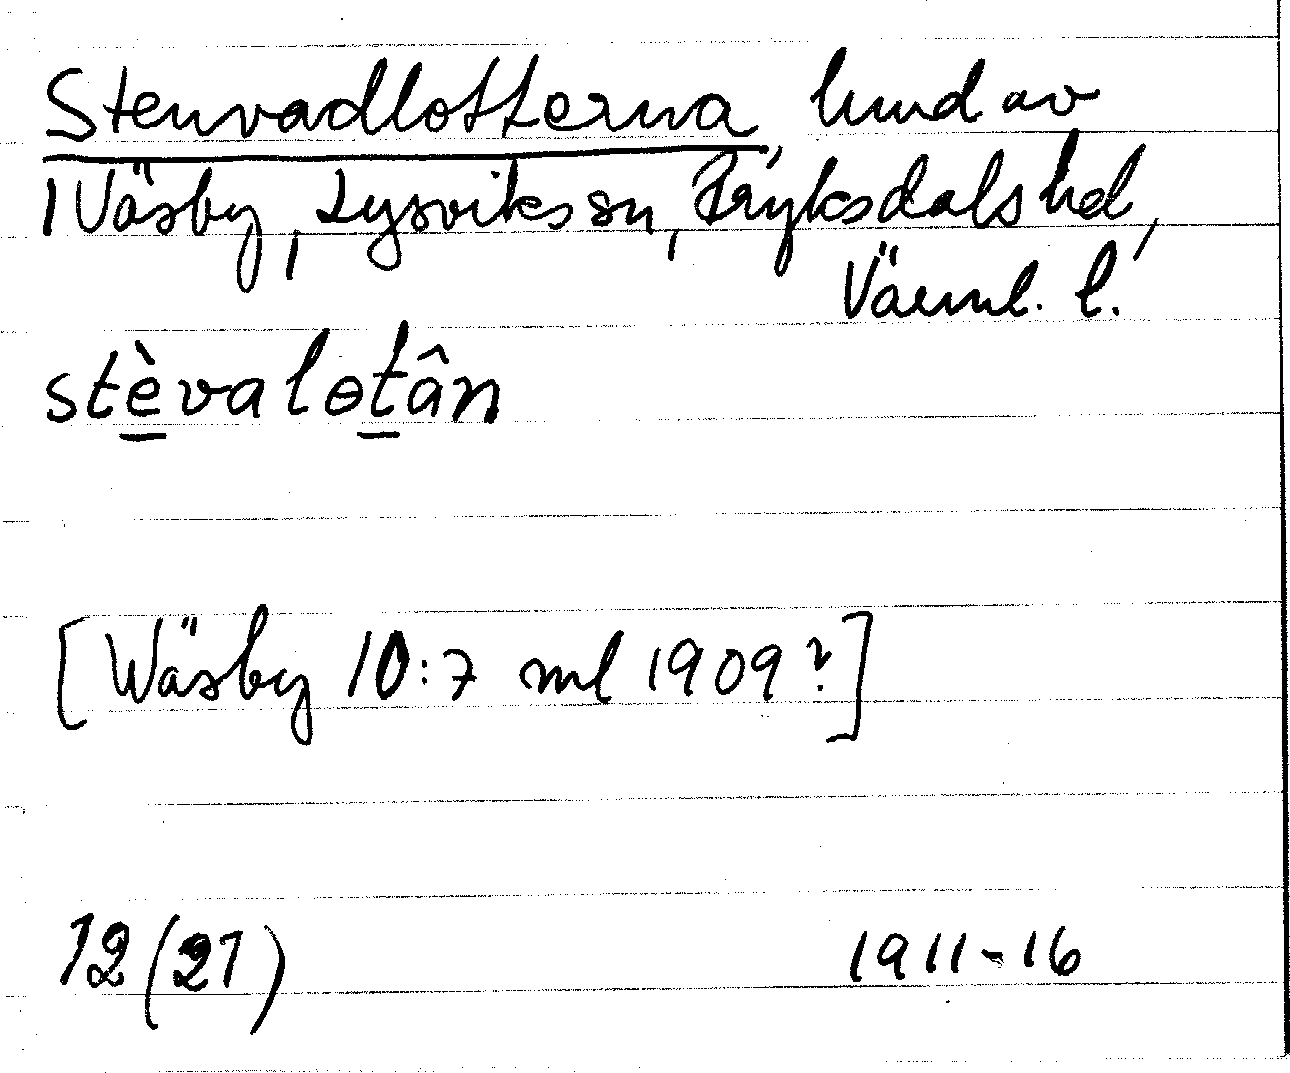 Stenvadlotterna, hmd av
1 Väsby, Lysviks sn, Fryksdals hd,
Värml. l.
stèvalɵtân
[Wäsby 10:7 ml 1909?]
12 (21) 1911-16